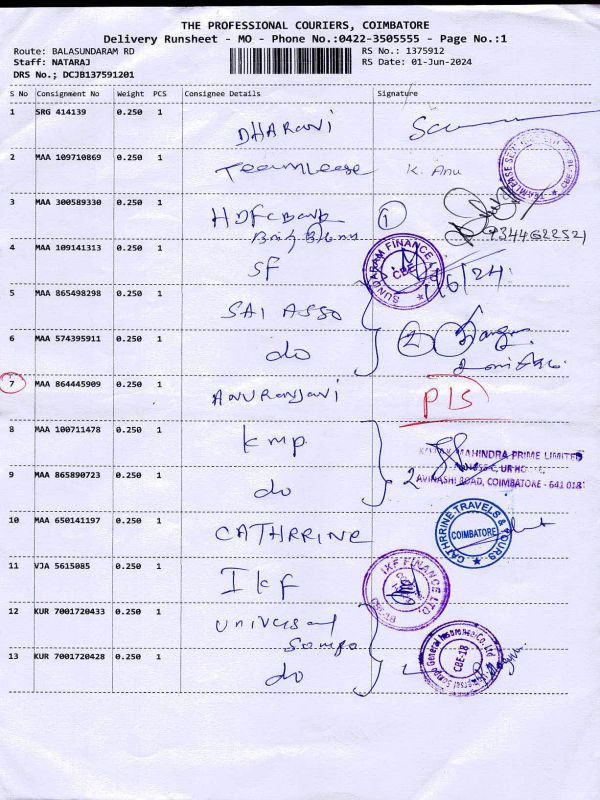 THE PROFESSIONAL COURIERS, COIMBATORE
Delivery Runsheet - MO - Phone No.:0422-3505555 - Page No.:1
Route: BALASUNDARAM RD RS No.: 1375912
Staff: NATARAJ RS Date: 01-Jun-2024
DRS No.; DCJB137591201
S No Consignment No Weight PCS Consignee Details Signature
1 SRG 414139 0.250 1 DHARANI
2 MAA 109710869 0.250 1 Teamlease K. Anu
3 MAA 300589330 0.250 1 HDFC Bank 1
9344622521
4 MAA 109141313 0.250 1 SF SUNDARAM FINANCE CBE /6/24
5 MAA 865498298 0.250 1 SAI ASSO
6 MAA 574395911 0.250 1 do 2
7 MAA 864445909 0.250 1 ANURANJANI PLS
8 MAA 100711478 0.250 1 kmp
MAHINDRA PRIME LIMITED
9 MAA 865890723 0.250 1 do 2
AVINASHI ROAD, COIMBATORE - 641 018
10 MAA 650141197 0.250 1 CATHRRINE CATHRRINE TRAVELS & TOURS COIMBATORE
11 VJA 5615085 0.250 1 IKF IKF FINANCE LTD.
12 KUR 7001720433 0.250 1 Universal
Sompo
13 KUR 7001720428 0.250 1 do Universal Sompo General Insurance Co. Ltd CBE-18